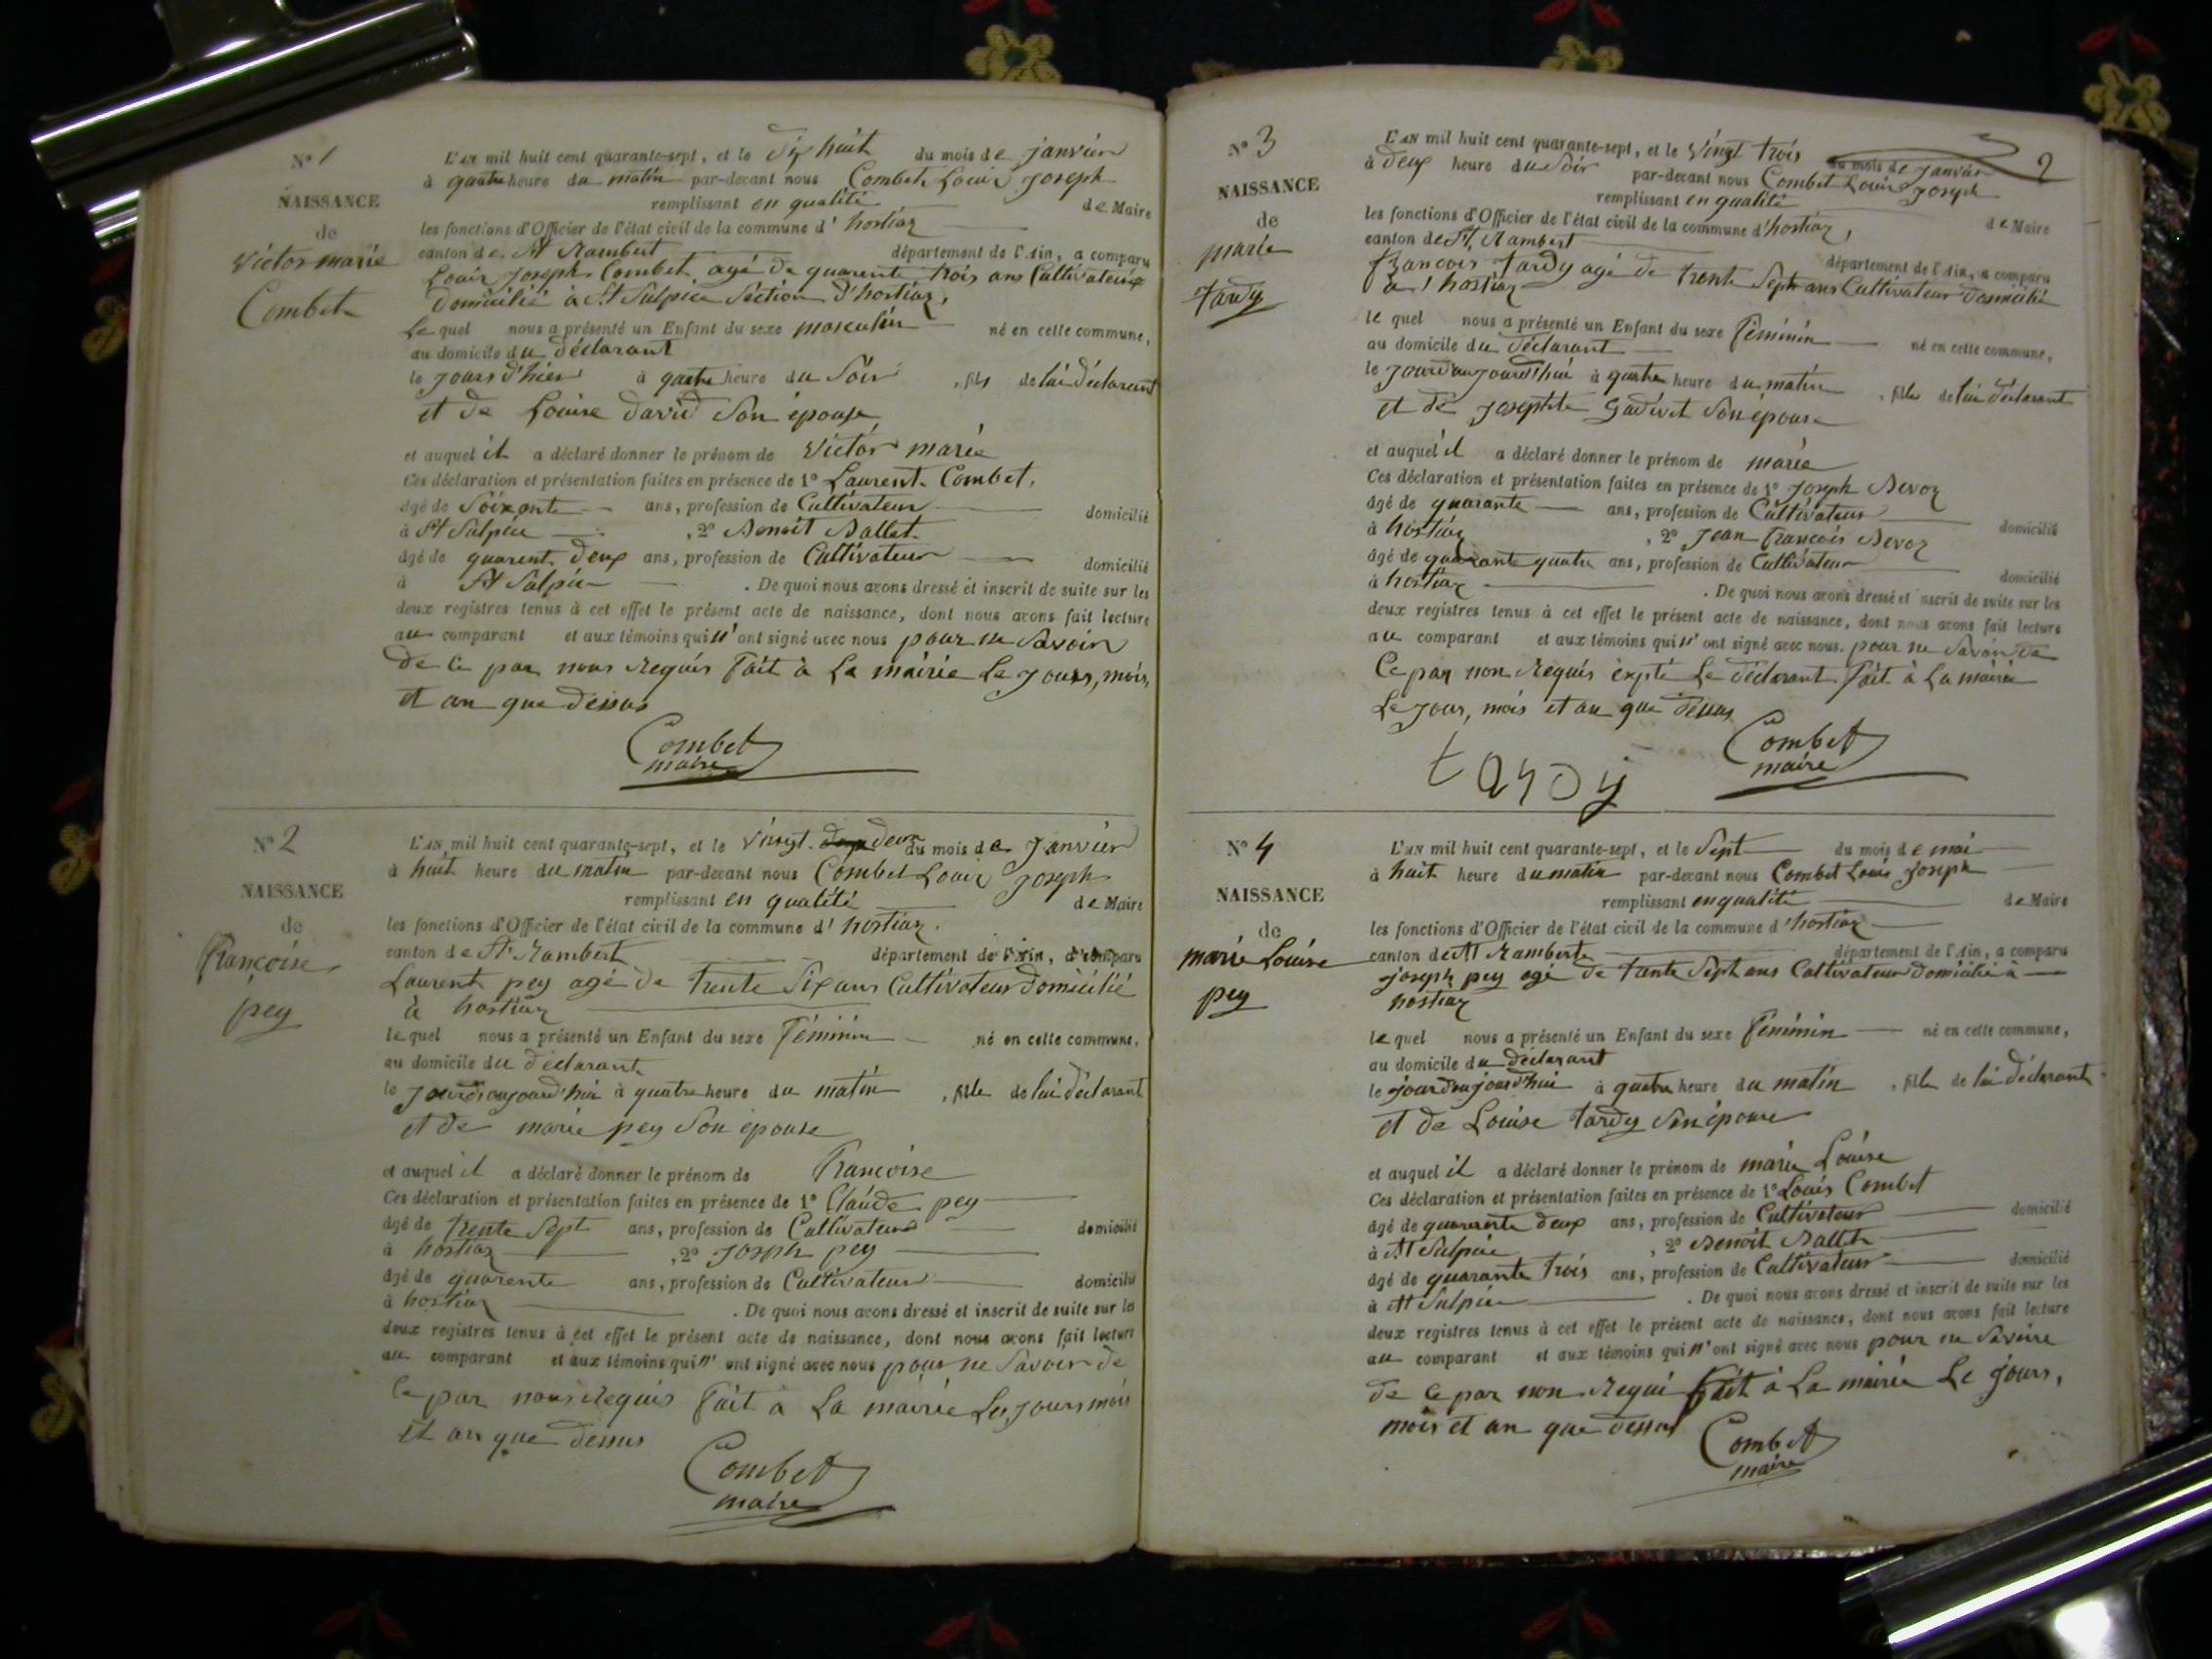 N° 1
NAISSANCE
de
Victor marie
Combet
L'AN mil huit cent quarante-sept, et le dix huit du mois de janvier
à quatre heure du matin par-devant nous Combet Louis Joseph
remplissant en qualité de Maire
les fonctions d'Officier de l'état civil de la commune d'hostiaz
canton de St Rambert département de l'Ain, a comparu
Louis Joseph Combet agé de quarente trois ans Cultivateur
domicilié à St Sulpice Section d'hostiaz,
Le quel nous a présenté un Enfant du sexe masculin né en cette commune,
au domicile du déclarant
le jours d'hier à quatre heure du Soir , fils de lui déclarant
et de Louise david Son épouse
et auquel il a déclaré donner le prénom de Victor marie
Ces déclaration et présentation faites en présence de 1° Laurent Combet,
âgé de Soixante ans, profession de Cultivateur domicilié
à St Sulpice , 2° Benoit Ballet
âgé de quarent deux ans, profession de Cultivateur domicilié
à St Sulpice . De quoi nous avons dressé et inscrit de suite sur les
deux registres tenus à cet effet le présent acte de naissance, dont nous avons fait lecture
au comparant et aux témoins qui n'ont signé avec nous pour ne Savoir
de ce par nous Requis fait à La mairie Le jours, mois,
et an que dessus
Combet
maire
N° 2
NAISSANCE
de
françoise
pey
L'AN mil huit cent quarante-sept, et le vingt deux du mois de Janvier
à huit heure du matin par-devant nous Combet Louis Joseph
remplissant en qualité de Maire
les fonctions d'Officier de l'état civil de la commune d'hostiaz.
canton de St Rambert département de l'Ain, a comparu
Laurent pey agé de trente Six ans Cultivateur domicilié
à hostiaz
le quel nous a présenté un Enfant du sexe féminin né en cette commune,
au domicile du déclarant
le jourd'aujourd'hui à quatre heure du matin , fille de lui déclarant
et de marie pey Son épouse
et auquel il a déclaré donner le prénom de françoise
Ces déclaration et présentation faites en présence de 1° Claude pey
âgé de trente Sept ans, profession de Cultivateur domicilié
à hostiaz , 2° Joseph pey
âgé de quarente ans, profession de Cultivateur domicilié
à hostiaz . De quoi nous avons dressé et inscrit de suite sur les
deux registres tenus à cet effet le présent acte de naissance, dont nous avons fait lecture
au comparant et aux témoins qui n'ont signé avec nous pour ne Savoir de
Ce par nous Requis fait à La mairie Les jours mois
et an que dessus
Combet
maire
2
N° 3
NAISSANCE
de
marie
tardy
L'AN mil huit cent quarante-sept, et le vingt trois du mois de Janvier
à deux heure du Soir par-devant nous Combet Louis Joseph
remplissant en qualité de Maire
les fonctions d'Officier de l'état civil de la commune d'hostiaz,
canton de St, Rambert département de l'Ain, a comparu
françois tardy agé de trente Sept ans Cultivateur domicilié
a hostiaz
le quel nous a présenté un Enfant du sexe féminin né en cette commune,
au domicile du déclarant
le jourd'aujourd'hui à quatre heure du matin , fille de lui déclarant
et de josephte Gadivet Son épouse
et auquel il a déclaré donner le prénom de marie
Ces déclaration et présentation faites en présence de 1° Joseph Revoz
âgé de quarante ans, profession de Cultivateur domicilié
à hostiaz , 2° Jean françois Revoz
âgé de quarante quatre ans, profession de Cultivateur domicilié
à hostiaz . De quoi nous avons dressé et inscrit de suite sur les
deux registres tenus à cet effet le présent acte de naissance, dont nous avons fait lecture
au comparant et aux témoins qui n'ont signé avec nous. pour ne Savoir de
Ce par non Requis expté Le déclarant fait à La mairie
Le jour, mois et an que dessus
Combet
maire
tardy
N° 4
NAISSANCE
de
marie Louise
pey
L'AN mil huit cent quarante-sept, et le Sept du mois de mai
à huit heure du matin par-devant nous Combet Louis Joseph
remplissant en qualité de Maire
les fonctions d'Officier de l'état civil de la commune d'hostiaz
canton de St Ramberte département de l'Ain, a comparu
joseph pey agé de tante Sept ans Cultivateur domicilié à
hostiaz
le quel nous a présenté un Enfant du sexe féminin né en cette commune,
au domicile du déclarant
le jourd'aujourd'hui à quatre heure du matin , fille de lui déclarant
et de Louise tardy Son épouse
et auquel il a déclaré donner le prénom de marie Louise
Ces déclaration et présentation faites en présence de 1° Louis Combet
âgé de quarente deux ans, profession de Cultivateur domicilié
à St Sulpice , 2° Benoit Ballet
âgé de quarante trois ans, profession de Cultivateur domicilié
à St Sulpice . De quoi nous avons dressé et inscrit de suite sur les
deux registres tenus à cet effet le présent acte de naissance, dont nous avons fait lecture
au comparant et aux témoins qui n'ont signé avec nous pour ne Savoire
de Ce par non Requi fait à La mairie Le jours,
mois et an que dessus
Combet
maire